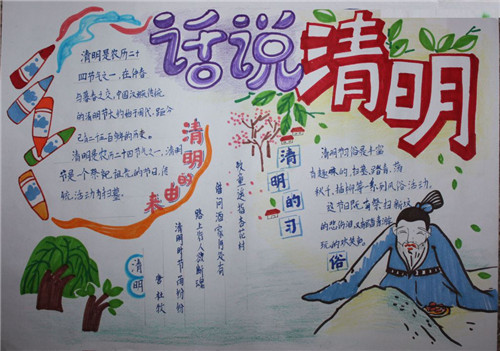 话说清明
清明是农历二十
四节气之一，在仲春
与暮春之交，中国汉族传统
的清明节大约始于周代，距今
已有二千五百多年的历史。
清明是农历二十四节气之一，清明
节是一个祭祀祖先的节日，传
统活动为扫墓。
清明的由来
清明
清明时节雨纷纷
路上行人欲断魂
借问酒家何处有
牧童遥指杏花村
唐 杜牧
清明的习俗
清明节习俗是丰富
有趣的，扫墓、踏青、荡
秋千、插柳等一系列风俗活动。
这节日既有祭扫新坟
的悲伤泪，又有踏青游
玩的欢笑声。